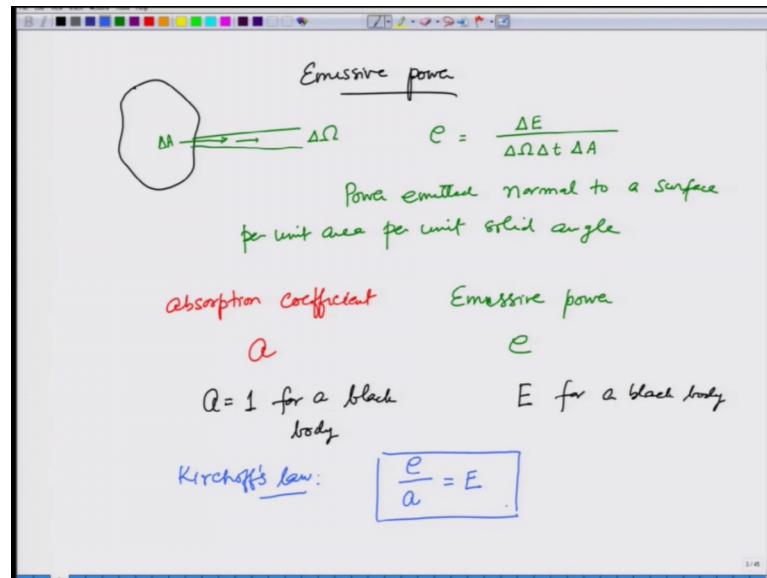 Emissive power
ΔA ΔΩ e = ΔE / ΔΩ Δt ΔA
Power emitted normal to a surface
per unit area per unit solid angle
absorption coefficient Emissive power
a e
a = 1 for a black body E for a black body
Kirchoff's law: e / a = E
3/45